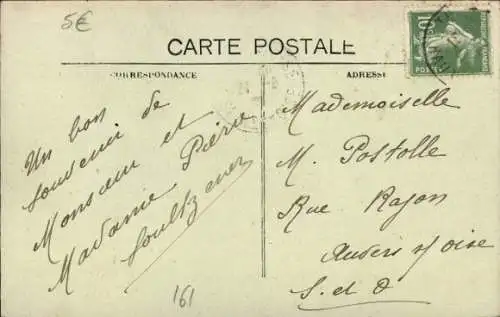 5€
CARTE POSTALE
CORRESPONDANCE
ADRESSE
10
POSTES
Un bon
souvenir de
Monsieur et
Madame Pierre
Mademoiselle
M. Postolle
Rue Rajon
Auvers s/ Oise
S. et O
161